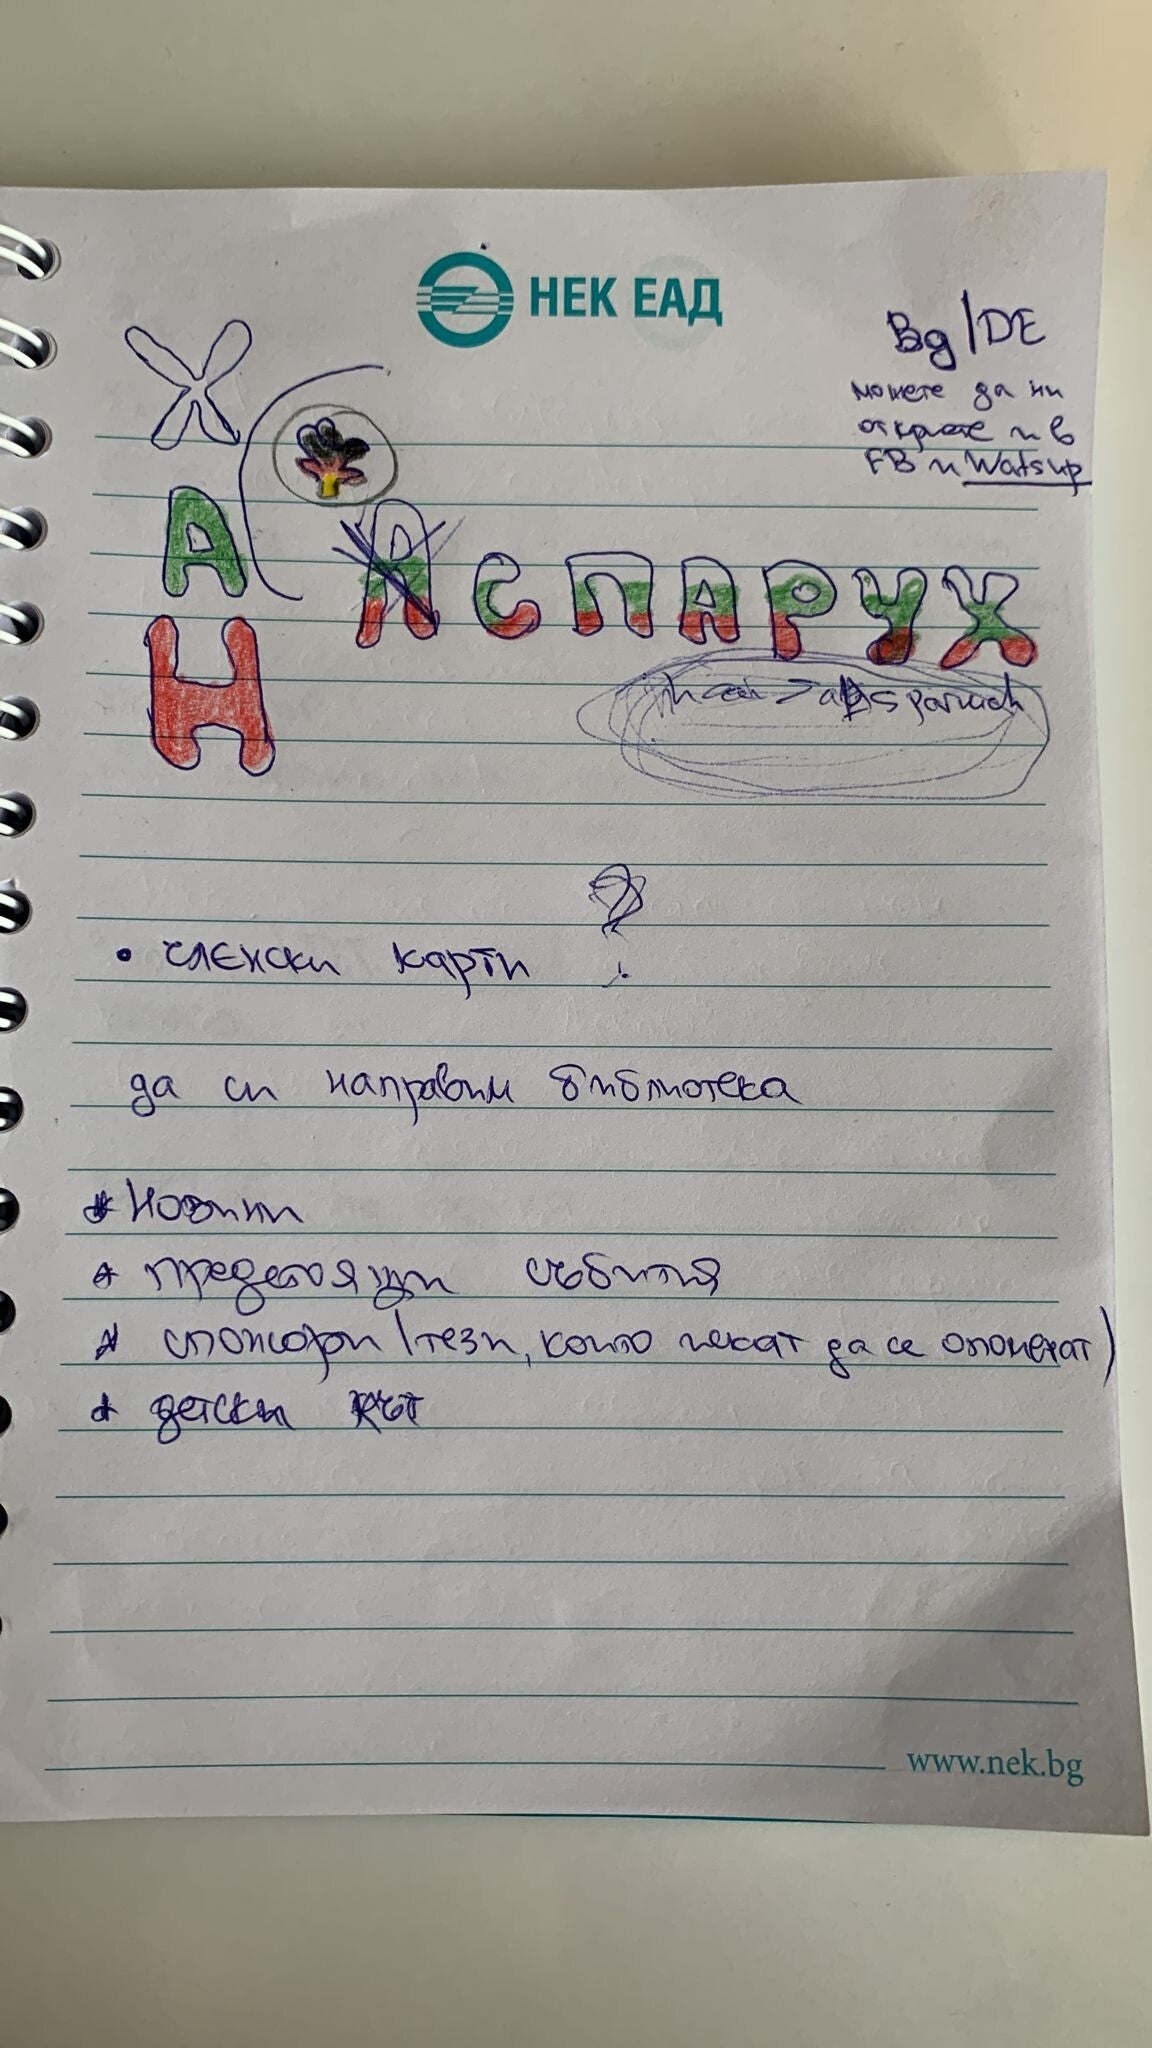 НЕК ЕАД
Bg/DE
можете да ни
откриете и в
FB и Watsup
ХАН
Аспарух
членски карти ?
да си направим библиотека
* Новини
* предстоящи събития
* спонсори (тези, които искат да се опоменат)
* детски кът
www.nek.bg